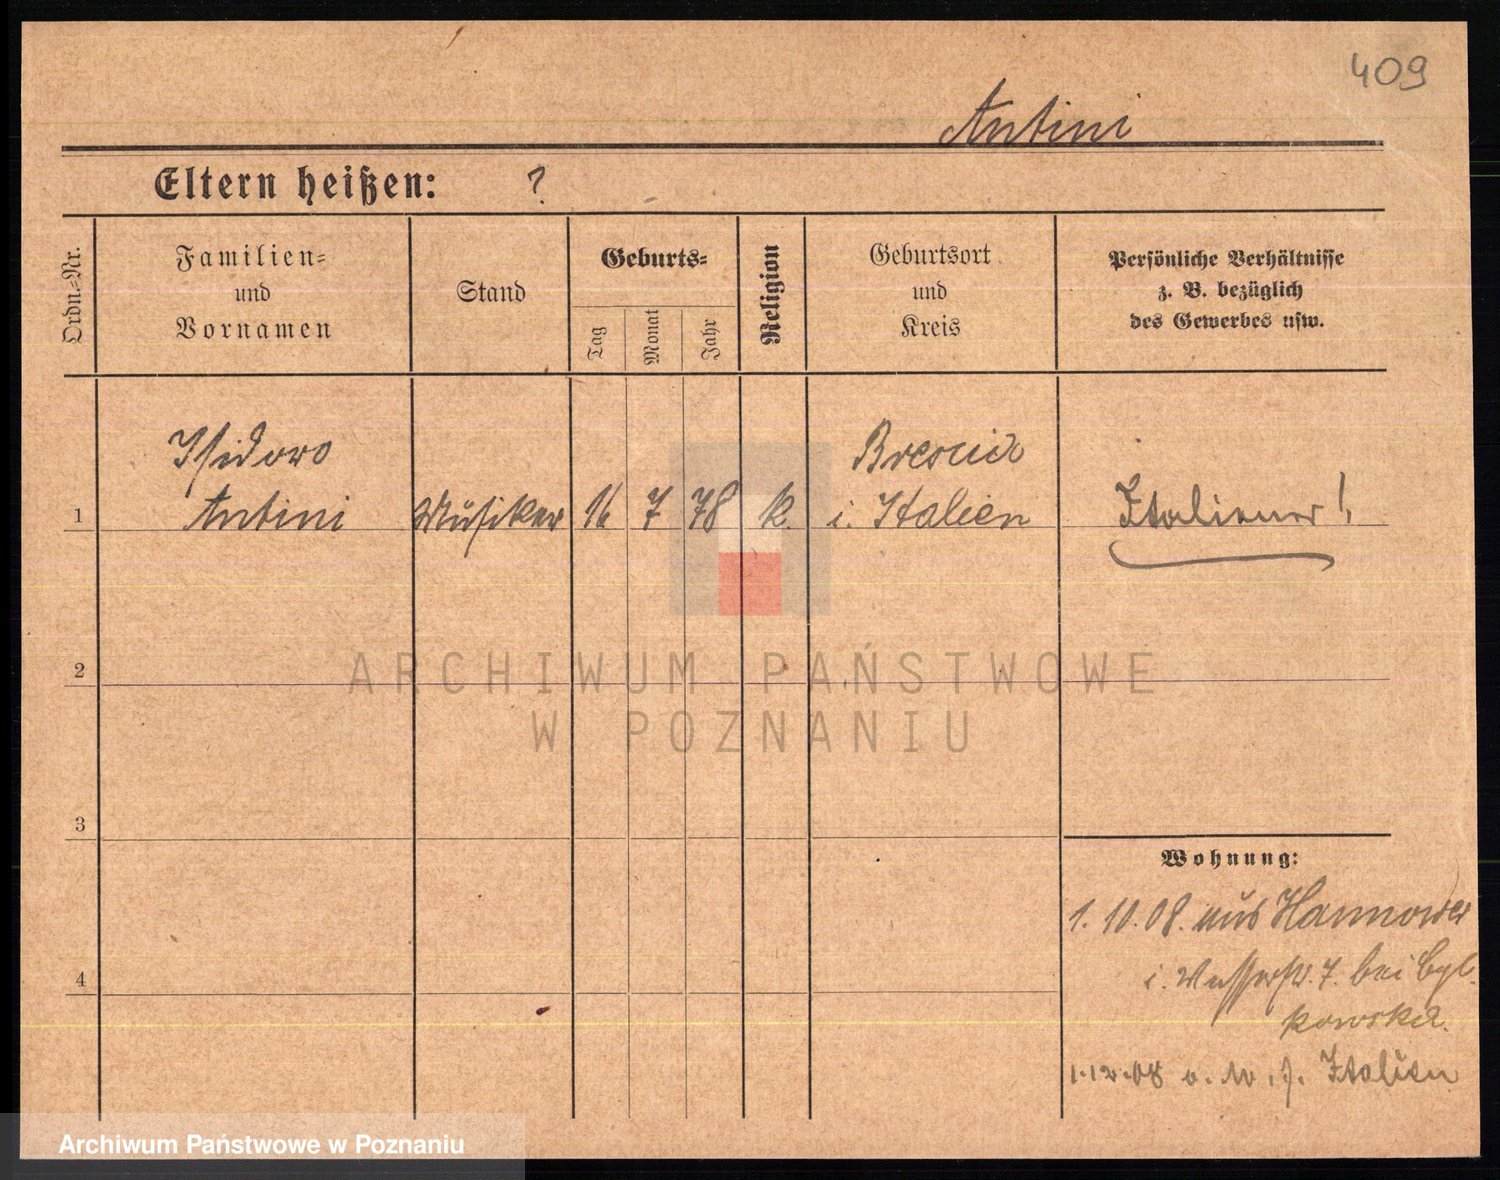 409
Antini
Eltern heißen: ?
Ordn.-Nr.
Familien- und Vornamen
Stand
Geburts-
Tag
Monat
Jahr
Religion
Geburtsort und Kreis
Persönliche Verhältnisse
z. B. bezüglich
des Gewerbes usw.
Isidoro
Brescia
1 Antini Musiker 16 7 78 k. i. Italien Italiener!
2
ARCHIWUM PAŃSTWOWE
W POZNANIU
3
Wohnung:
1.10.08. aus Hannover
4
i. Wasserstr. 7. bei
kowska.
1.12.08 Italien
Archiwum Państwowe w Poznaniu